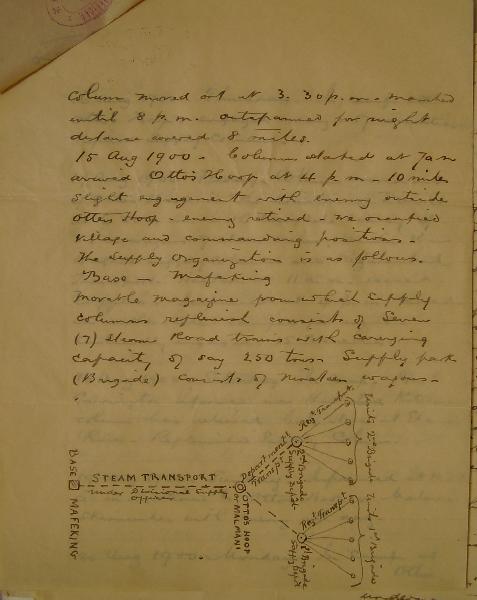 Column moved out at 3.30 p.m. - marched
until 8 p.m. outspanned for night
distance covered 8 miles.
15 Aug 1900 - Column started at 7 am
arrived Otto's Hoop at 4 p m - 10 miles
slight engagement with enemy outside
Otto's Hoop - enemy retired - we occupied
village and commanding positions -
The Supply Organization is as follows.
Base - Mafeking
Movable magazine from which Supply
columns replenish consists of Seven
(7) Steam Road trains with carrying
capacity of say 250 tons - Supply park
(Brigade) consists of nineteen wagons -
BASE MAFEKING
STEAM TRANSPORT
under Divisional Supply
Officer
OTTO'S HOOP
or MALMANI
Departmental
Transport
2nd Brigade
Supply Depôt
Regt Transport
Units 2nd Brigade
1st Brigade
Supply Depôt
Regt Transport
Units 1st Brigade